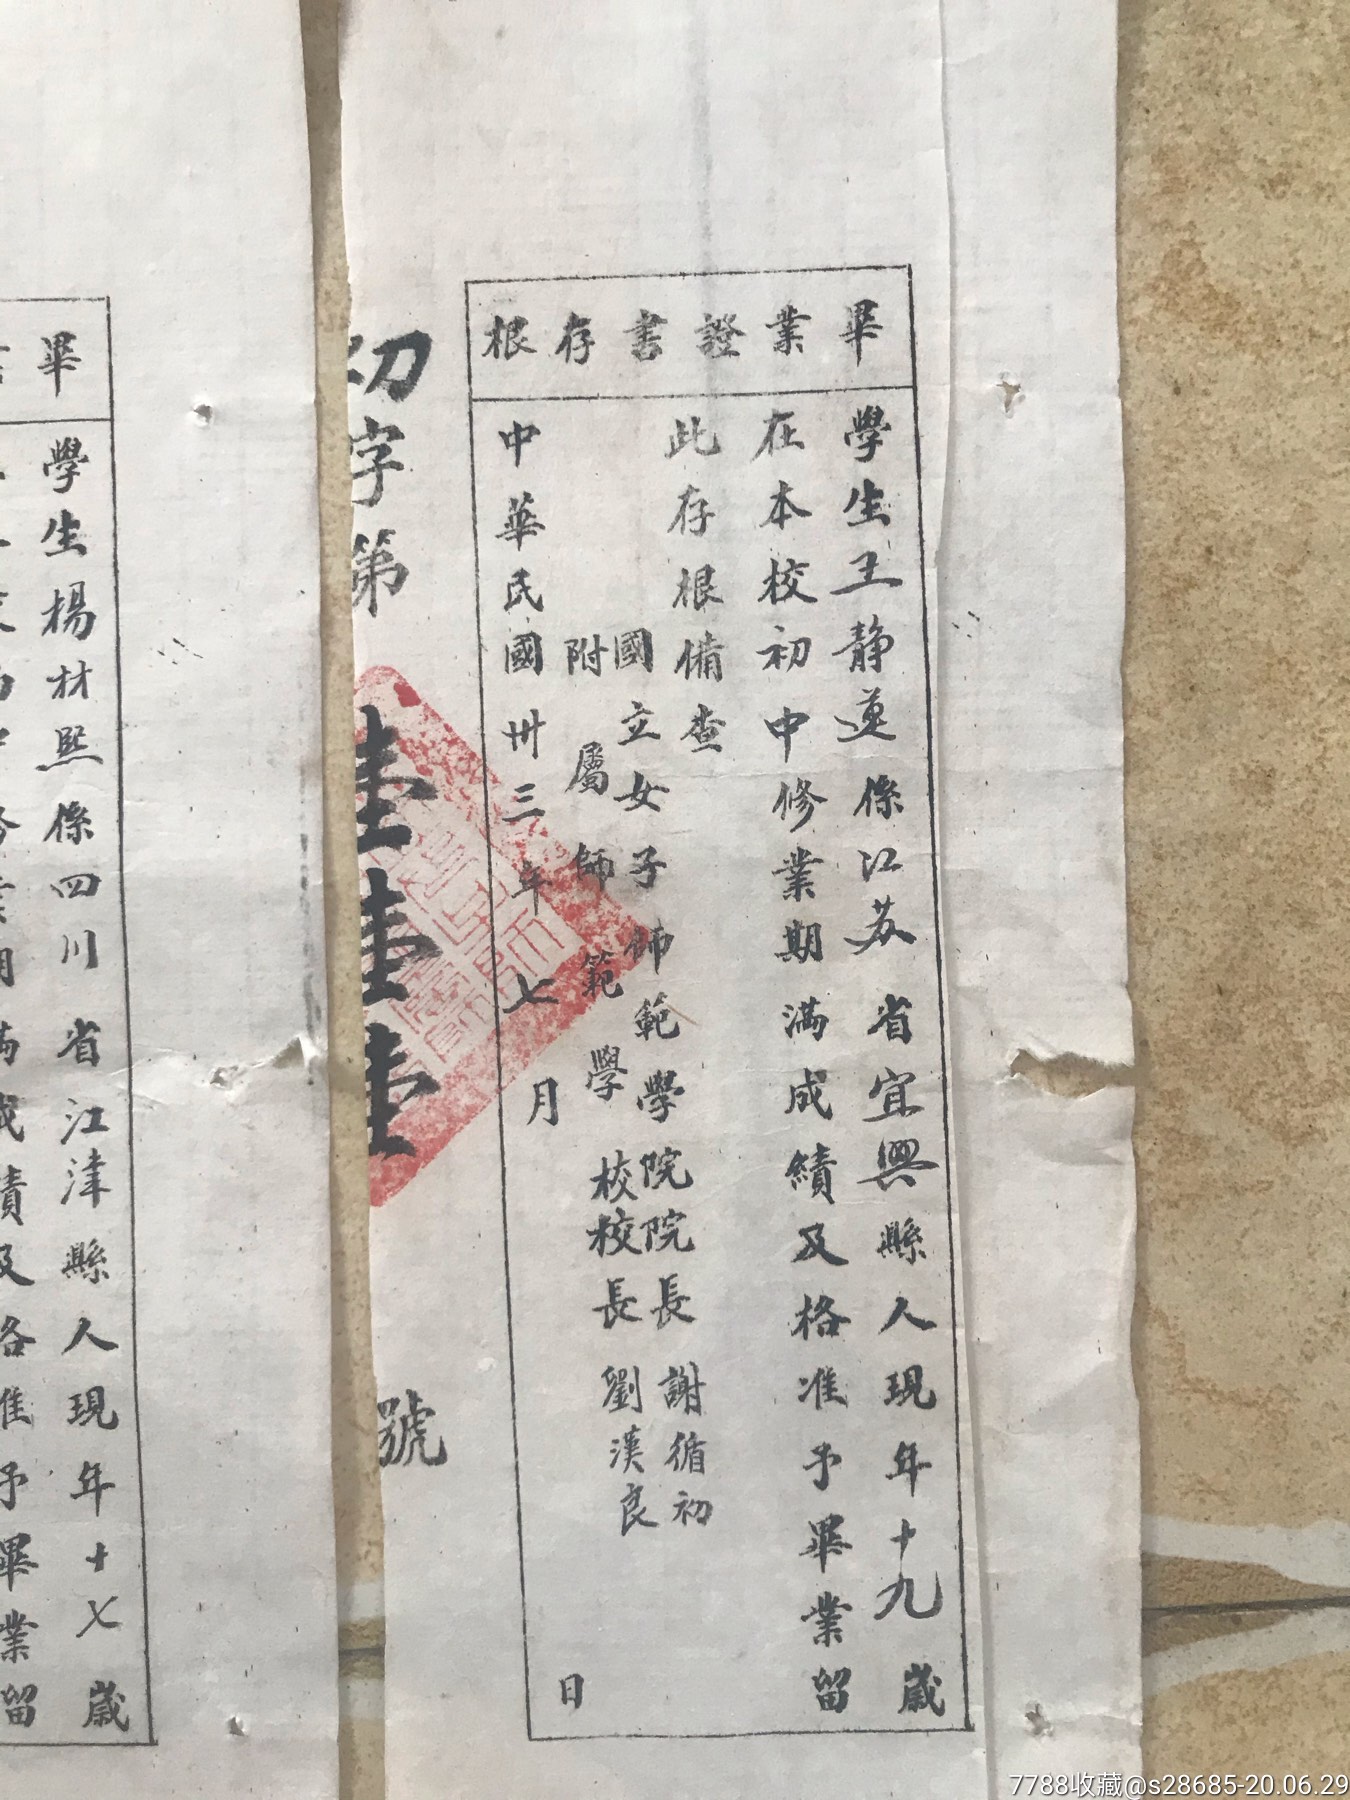 畢業證書存根
學生王靜蓮係江苏省宜興縣人現年十九歲
在本校初中修業期滿成績及格准予畢業留
此存根備查
國立女子師範學院院長謝循初
附屬師範學校校長劉漢良
中華民國卅三年七月 日
初字第壹壹壹號
畢
學生楊材熙係四川省江津縣人現年十七歲
滿成績及格准予畢業留
7788收藏@s28685-20.06.29